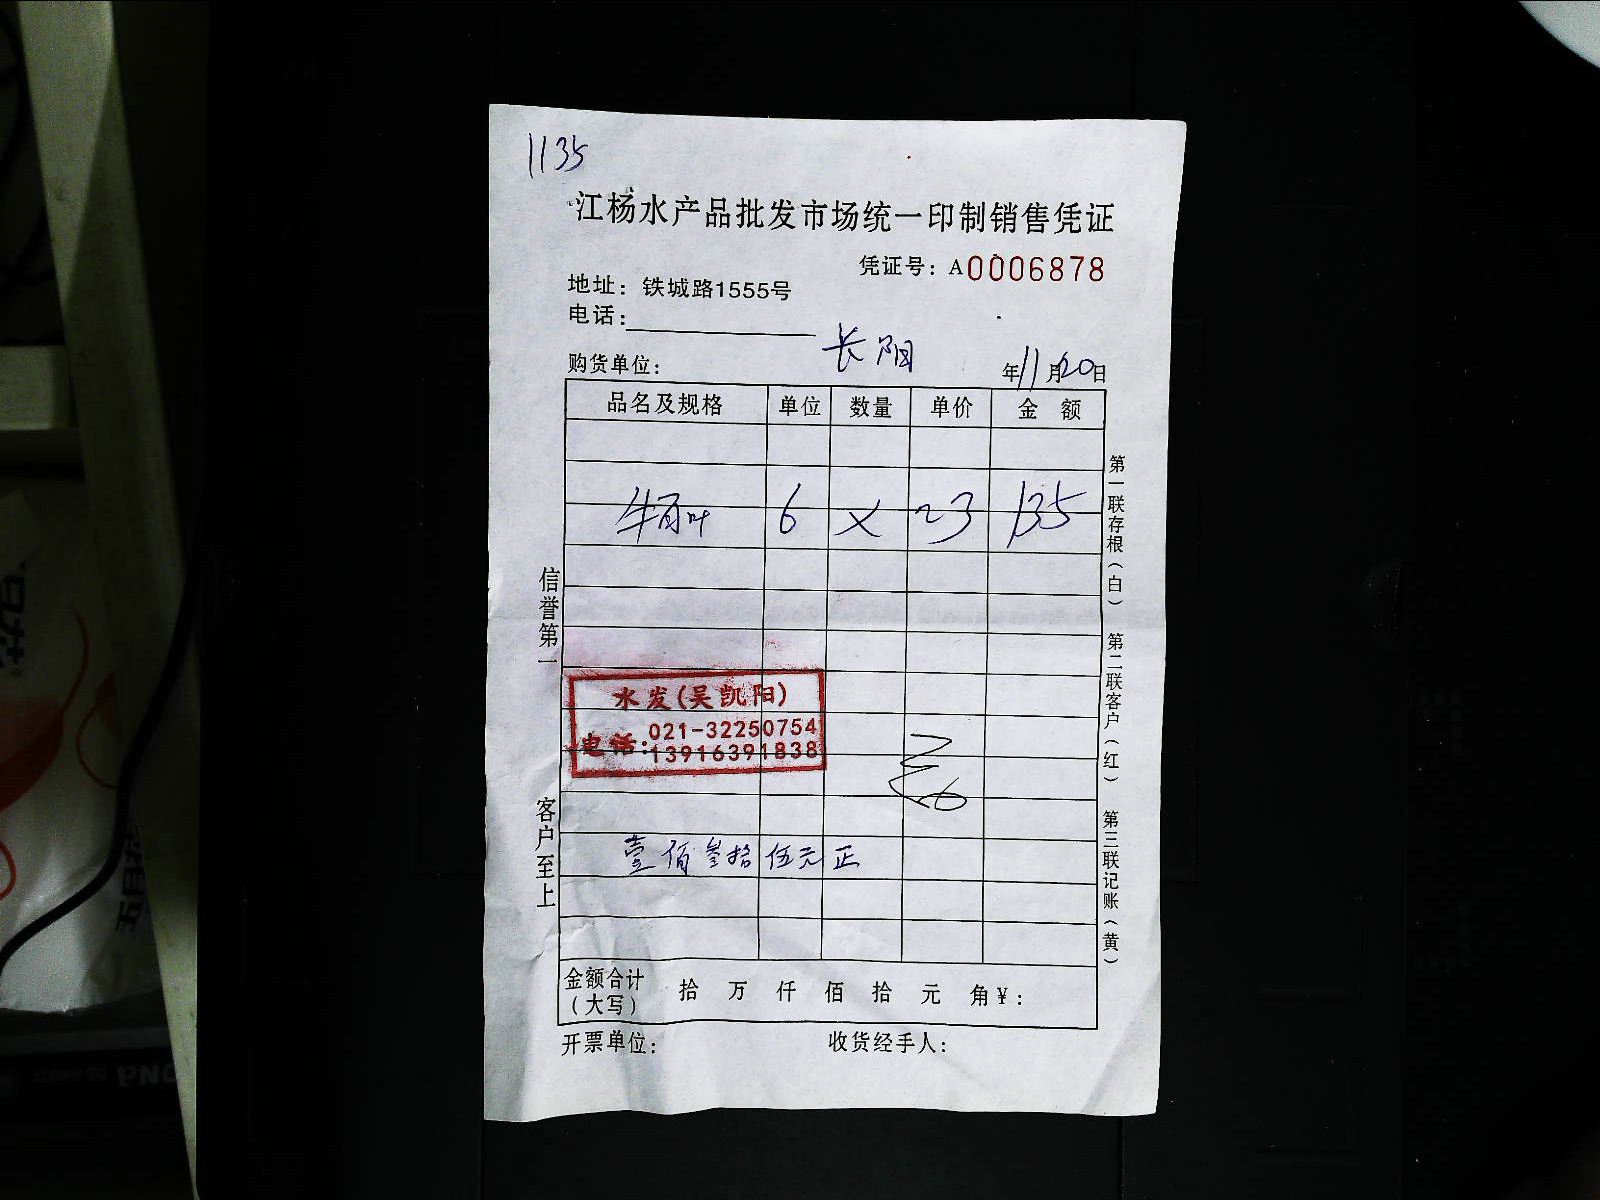 1135
江杨水产品批发市场统一印制销售凭证
凭证号：A0006878
地址：铁城路1555号
电话：
购货单位： 长阳 年11月20日
品名及规格 单位 数量 单价 金额
牛百叶 6 × 23 135
水发(吴凯阳)
电话：021-32250754
13916391838
壹佰叁拾伍元正
金额合计（大写） 拾 万 仟 佰 拾 元 角 ¥：
开票单位： 收货经手人：
信誉第一 客户至上
第一联存根（白） 第二联客户（红） 第三联记账（黄）